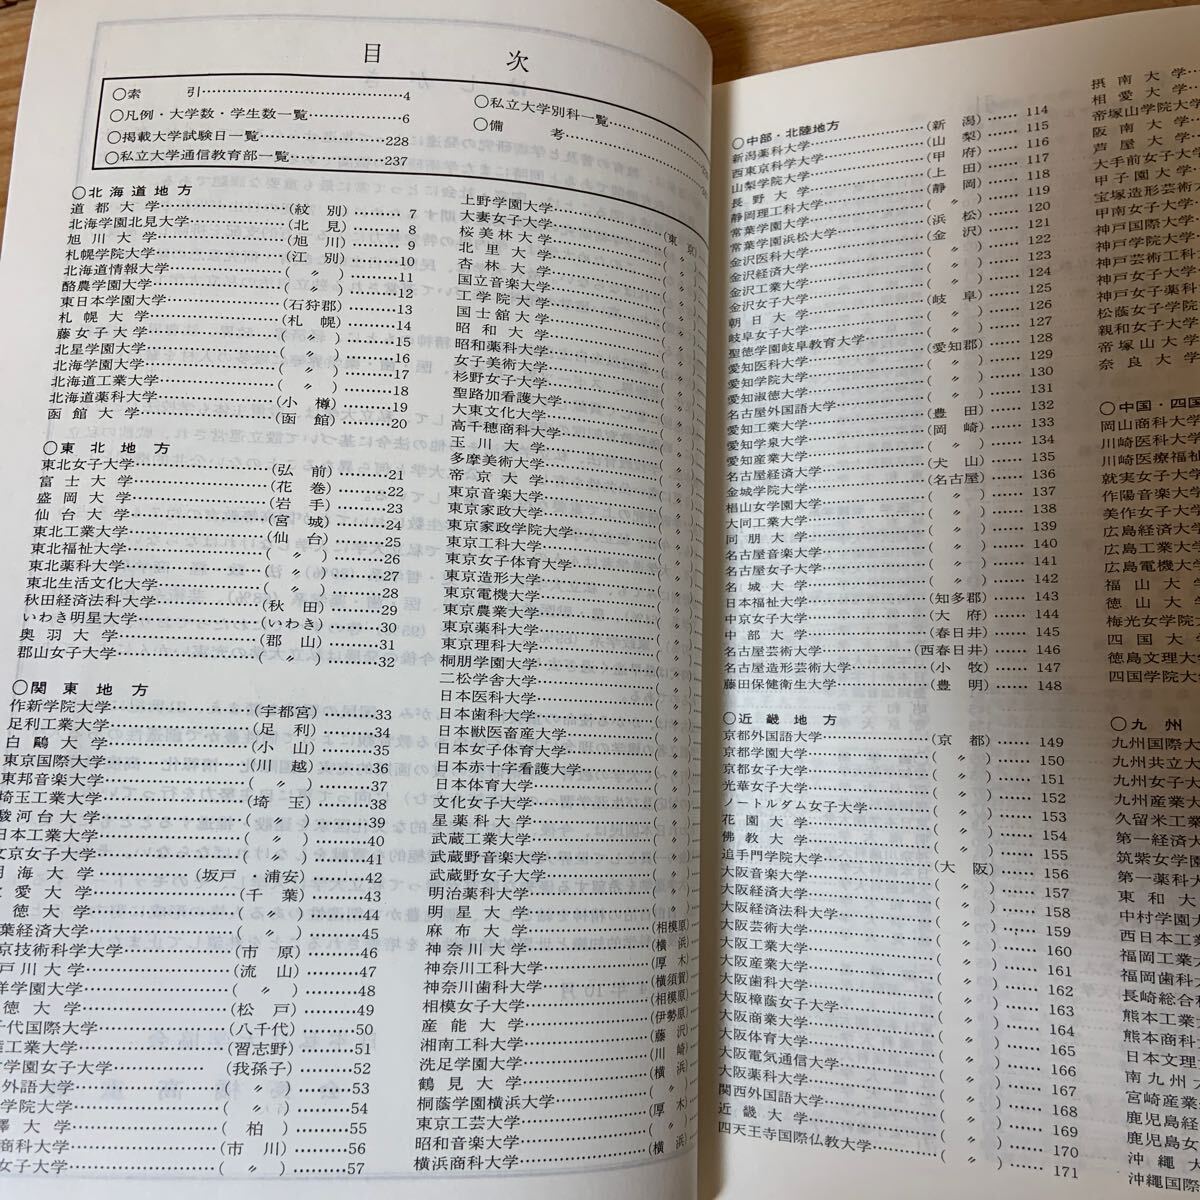 目　次
○索　引 4
○凡例・大学数・学生数一覧 6
○掲載大学試験日一覧 228
○私立大学通信教育部一覧 237
○私立大学別科一覧
○備　考
○北海道地方
道都大学 (紋別) 7
北海学園北見大学 (北見) 8
旭川大学 (旭川) 9
札幌学院大学 (江別) 10
北海道情報大学 (〃) 11
酪農学園大学 (〃) 12
東日本学園大学 (石狩郡) 13
札幌大学 (札幌) 14
藤女子大学 (〃) 15
北星学園大学 (〃) 16
北海学園大学 (〃) 17
北海道工業大学 (〃) 18
北海道薬科大学 (小樽) 19
函館大学 (函館) 20
○東北地方
東北女子大学 (弘前) 21
富士大学 (花巻) 22
盛岡大学 (岩手) 23
仙台大学 (宮城) 24
東北工業大学 (仙台) 25
東北福祉大学 (〃) 26
東北薬科大学 (〃) 27
東北生活文化大学 (〃) 28
秋田経済法科大学 (秋田) 29
いわき明星大学 (いわき) 30
奥羽大学 (郡山) 31
郡山女子大学 (〃) 32
○関東地方
作新学院大学 (宇都宮) 33
足利工業大学 (足利) 34
白鷗大学 (小山) 35
東京国際大学 (川越) 36
東邦音楽大学 (〃) 37
埼玉工業大学 (埼玉) 38
駿河台大学 (〃) 39
日本工業大学 (〃) 40
文京女子大学 (〃) 41
明海大学 (坂戸・浦安) 42
愛大学 (千葉) 43
徳大学 (〃) 44
葉経済大学 (〃) 45
京技術科学大学 (市原) 46
戸川大学 (流山) 47
洋学園大学 (〃) 48
徳大学 (松戸) 49
千代国際大学 (八千代) 50
工業大学 (習志野) 51
学園大学 (我孫子) 52
外語大学 (〃) 53
学院大学 (〃) 54
澤大学 (柏) 55
商科大学 (市川) 56
女子大学 (〃) 57
上野学園大学 (東京)
大妻女子大学 (〃)
桜美林大学 (〃)
北里大学 (〃)
杏林大学 (〃)
国立音楽大学 (〃)
工学院大学 (〃)
国士舘大学 (〃)
昭和大学 (〃)
昭和薬科大学 (〃)
女子美術大学 (〃)
杉野女子大学 (〃)
聖路加看護大学 (〃)
大東文化大学 (〃)
高千穂商科大学 (〃)
玉川大学 (〃)
多摩美術大学 (〃)
帝京大学 (〃)
東京音楽大学 (〃)
東京家政大学 (〃)
東京家政学院大学 (〃)
東京工科大学 (〃)
東京女子体育大学 (〃)
東京造形大学 (〃)
東京電機大学 (〃)
東京農業大学 (〃)
東京薬科大学 (〃)
東京理科大学 (〃)
桐朋学園大学 (〃)
二松学舎大学 (〃)
日本医科大学 (〃)
日本歯科大学 (〃)
日本獣医畜産大学 (〃)
日本女子体育大学 (〃)
日本赤十字看護大学 (〃)
日本体育大学 (〃)
文化女子大学 (〃)
星薬科大学 (〃)
武蔵工業大学 (〃)
武蔵野音楽大学 (〃)
武蔵野女子大学 (〃)
明治薬科大学 (〃)
明星大学 (〃)
麻布大学 (相模原)
神奈川大学 (横浜)
神奈川工科大学 (厚木)
神奈川歯科大学 (横須賀)
相模女子大学 (相模原)
産能大学 (伊勢原)
湘南工科大学 (藤沢)
洗足学園大学 (川崎)
鶴見大学 (横浜)
桐蔭学園横浜大学 (〃)
東京工芸大学 (厚木)
昭和音楽大学 (〃)
横浜商科大学 (横浜)
○中部・北陸地方
新潟薬科大学 (新潟) 114
西東京科学大学 (山梨) 115
山梨学院大学 (甲府) 116
長野大学 (上田) 117
静岡理工科大学 (静岡) 118
常葉学園大学 (〃) 119
常葉学園浜松大学 (浜松) 120
金沢医科大学 (金沢) 121
金沢経済大学 (〃) 122
金沢工業大学 (〃) 123
金沢女子大学 (〃) 124
朝日大学 (岐阜) 125
岐阜女子大学 (〃) 126
聖徳学園岐阜教育大学 (〃) 127
愛知医科大学 (愛知郡) 128
愛知学院大学 (〃) 129
愛知淑徳大学 (〃) 130
名古屋外国語大学 (〃) 131
愛知工業大学 (豊田) 132
愛知学泉大学 (岡崎) 133
愛知産業大学 (〃) 134
名古屋経済大学 (犬山) 135
金城学院大学 (名古屋) 136
椙山女学園大学 (〃) 137
大同工業大学 (〃) 138
同朋大学 (〃) 139
名古屋音楽大学 (〃) 140
名古屋女子大学 (〃) 141
名城大学 (〃) 142
日本福祉大学 (知多郡) 143
中京女子大学 (大府) 144
中部大学 (春日井) 145
名古屋芸術大学 (西春日井) 146
名古屋造形芸術大学 (小牧) 147
藤田保健衛生大学 (豊明) 148
○近畿地方
京都外国語大学 (京都) 149
京都学園大学 (〃) 150
京都女子大学 (〃) 151
光華女子大学 (〃) 152
ノートルダム女子大学 (〃) 153
花園大学 (〃) 154
佛教大学 (〃) 155
追手門学院大学 (大阪) 156
大阪音楽大学 (〃) 157
大阪経済大学 (〃) 158
大阪経済法科大学 (〃) 159
大阪芸術大学 (〃) 160
大阪工業大学 (〃) 161
大阪産業大学 (〃) 162
大阪歯科大学 (〃) 163
大阪樟蔭女子大学 (〃) 164
大阪商業大学 (〃) 165
大阪体育大学 (〃) 166
大阪電気通信大学 (〃) 167
大阪薬科大学 (〃) 168
関西外国語大学 (〃) 169
近畿大学 (〃) 170
四天王寺国際仏教大学 (〃) 171
摂南大学
相愛大学
帝塚山学院大学
阪南大学
芦屋大学
大手前女子大学
甲子園大学
宝塚造形芸術
甲南女子大学
神戸国際大学
神戸学院大学
神戸芸術工科
神戸女子大学
神戸女子薬科
松蔭女子学院
親和女子大学
帝塚山大学
奈良大学
○中国・四国
岡山商科大学
川崎医科大学
川崎医療福祉
就実女子大学
作陽音楽大学
美作女子大学
広島経済大学
広島工業大学
広島電機大学
福山大学
徳山大学
梅光女学院
四国大
徳島文理大
四国学院大
○九州
九州国際大
九州共立大
九州女子大
九州産業大
久留米工業
第一経済大
筑紫女学園
第一薬科大
東和大
中村学園大
西日本工業
福岡工業大
福岡歯科大
長崎総合科
熊本工業大
熊本商科大
日本文理大
南九州大
宮崎産業
鹿児島経
鹿児島女
沖縄大
沖縄国際